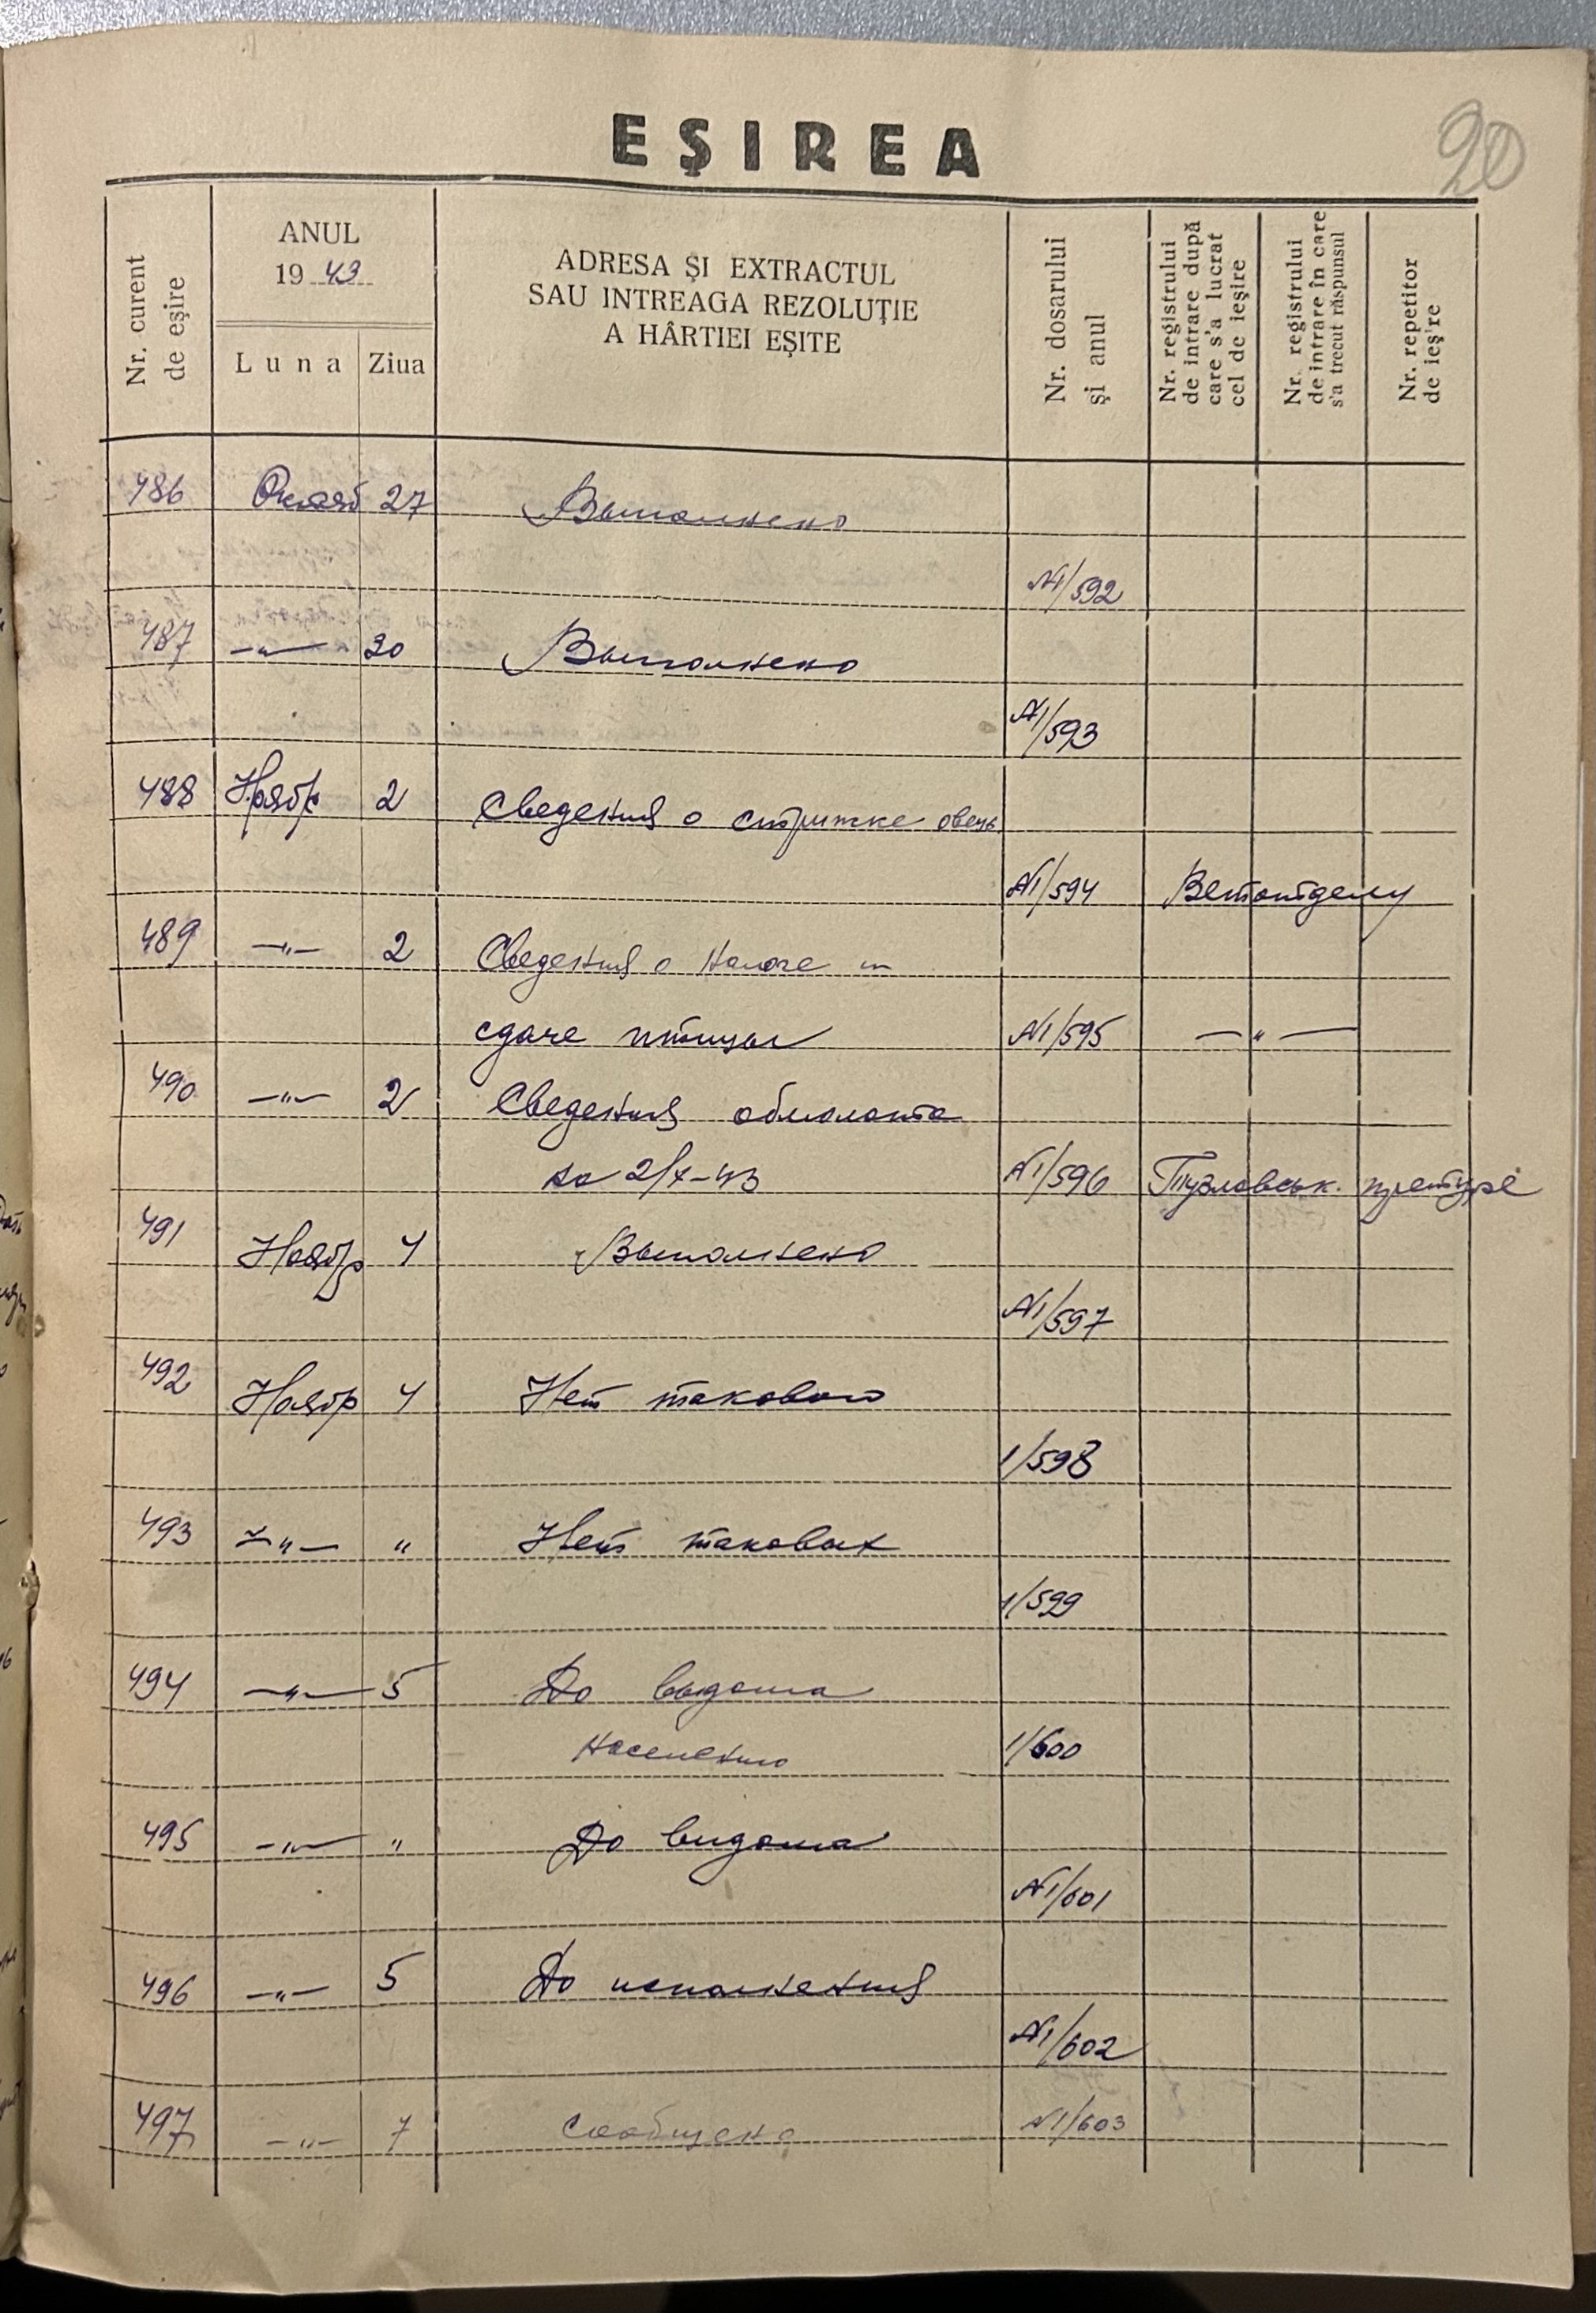 EŞIREA
20
Nr. curent
de eşire
ANUL
19 43
Luna
Ziua
ADRESA ŞI EXTRACTUL
SAU INTREAGA REZOLUŢIE
A HÂRTIEI EŞITE
Nr. dosarului
şi anul
Nr. registrului
de intrare după
care s'a lucrat
cel de ieşire
Nr. registrului
de intrare în care
s'a trecut răspunsul
Nr. repetitor
de ieş're
486 Октяб 27 Выполнено
№1/592
487 —„— 30 Выполнено
№1/593
488 Ноябр 2 Сведения о стрижке овець
№1/594 Ветотделу
489 —„— 2 Сведения о и
сдаче птицы №1/595 —„—
490 —„— 2 Сведения обмолота
на 2/X-43 №1/596 Тузловськ. претуре
491 Ноябр 4 Выполнено
№1/597
492 Ноябр 4 Нет такового
1/598
493 —„— „ Нет таковых
1/599
494 —„— 5 До видома
населению 1/600
495 —„— „ До видома
№1/601
496 —„— 5 До исполнения
№1/602
497 —„— 7 Сообщено №1/603